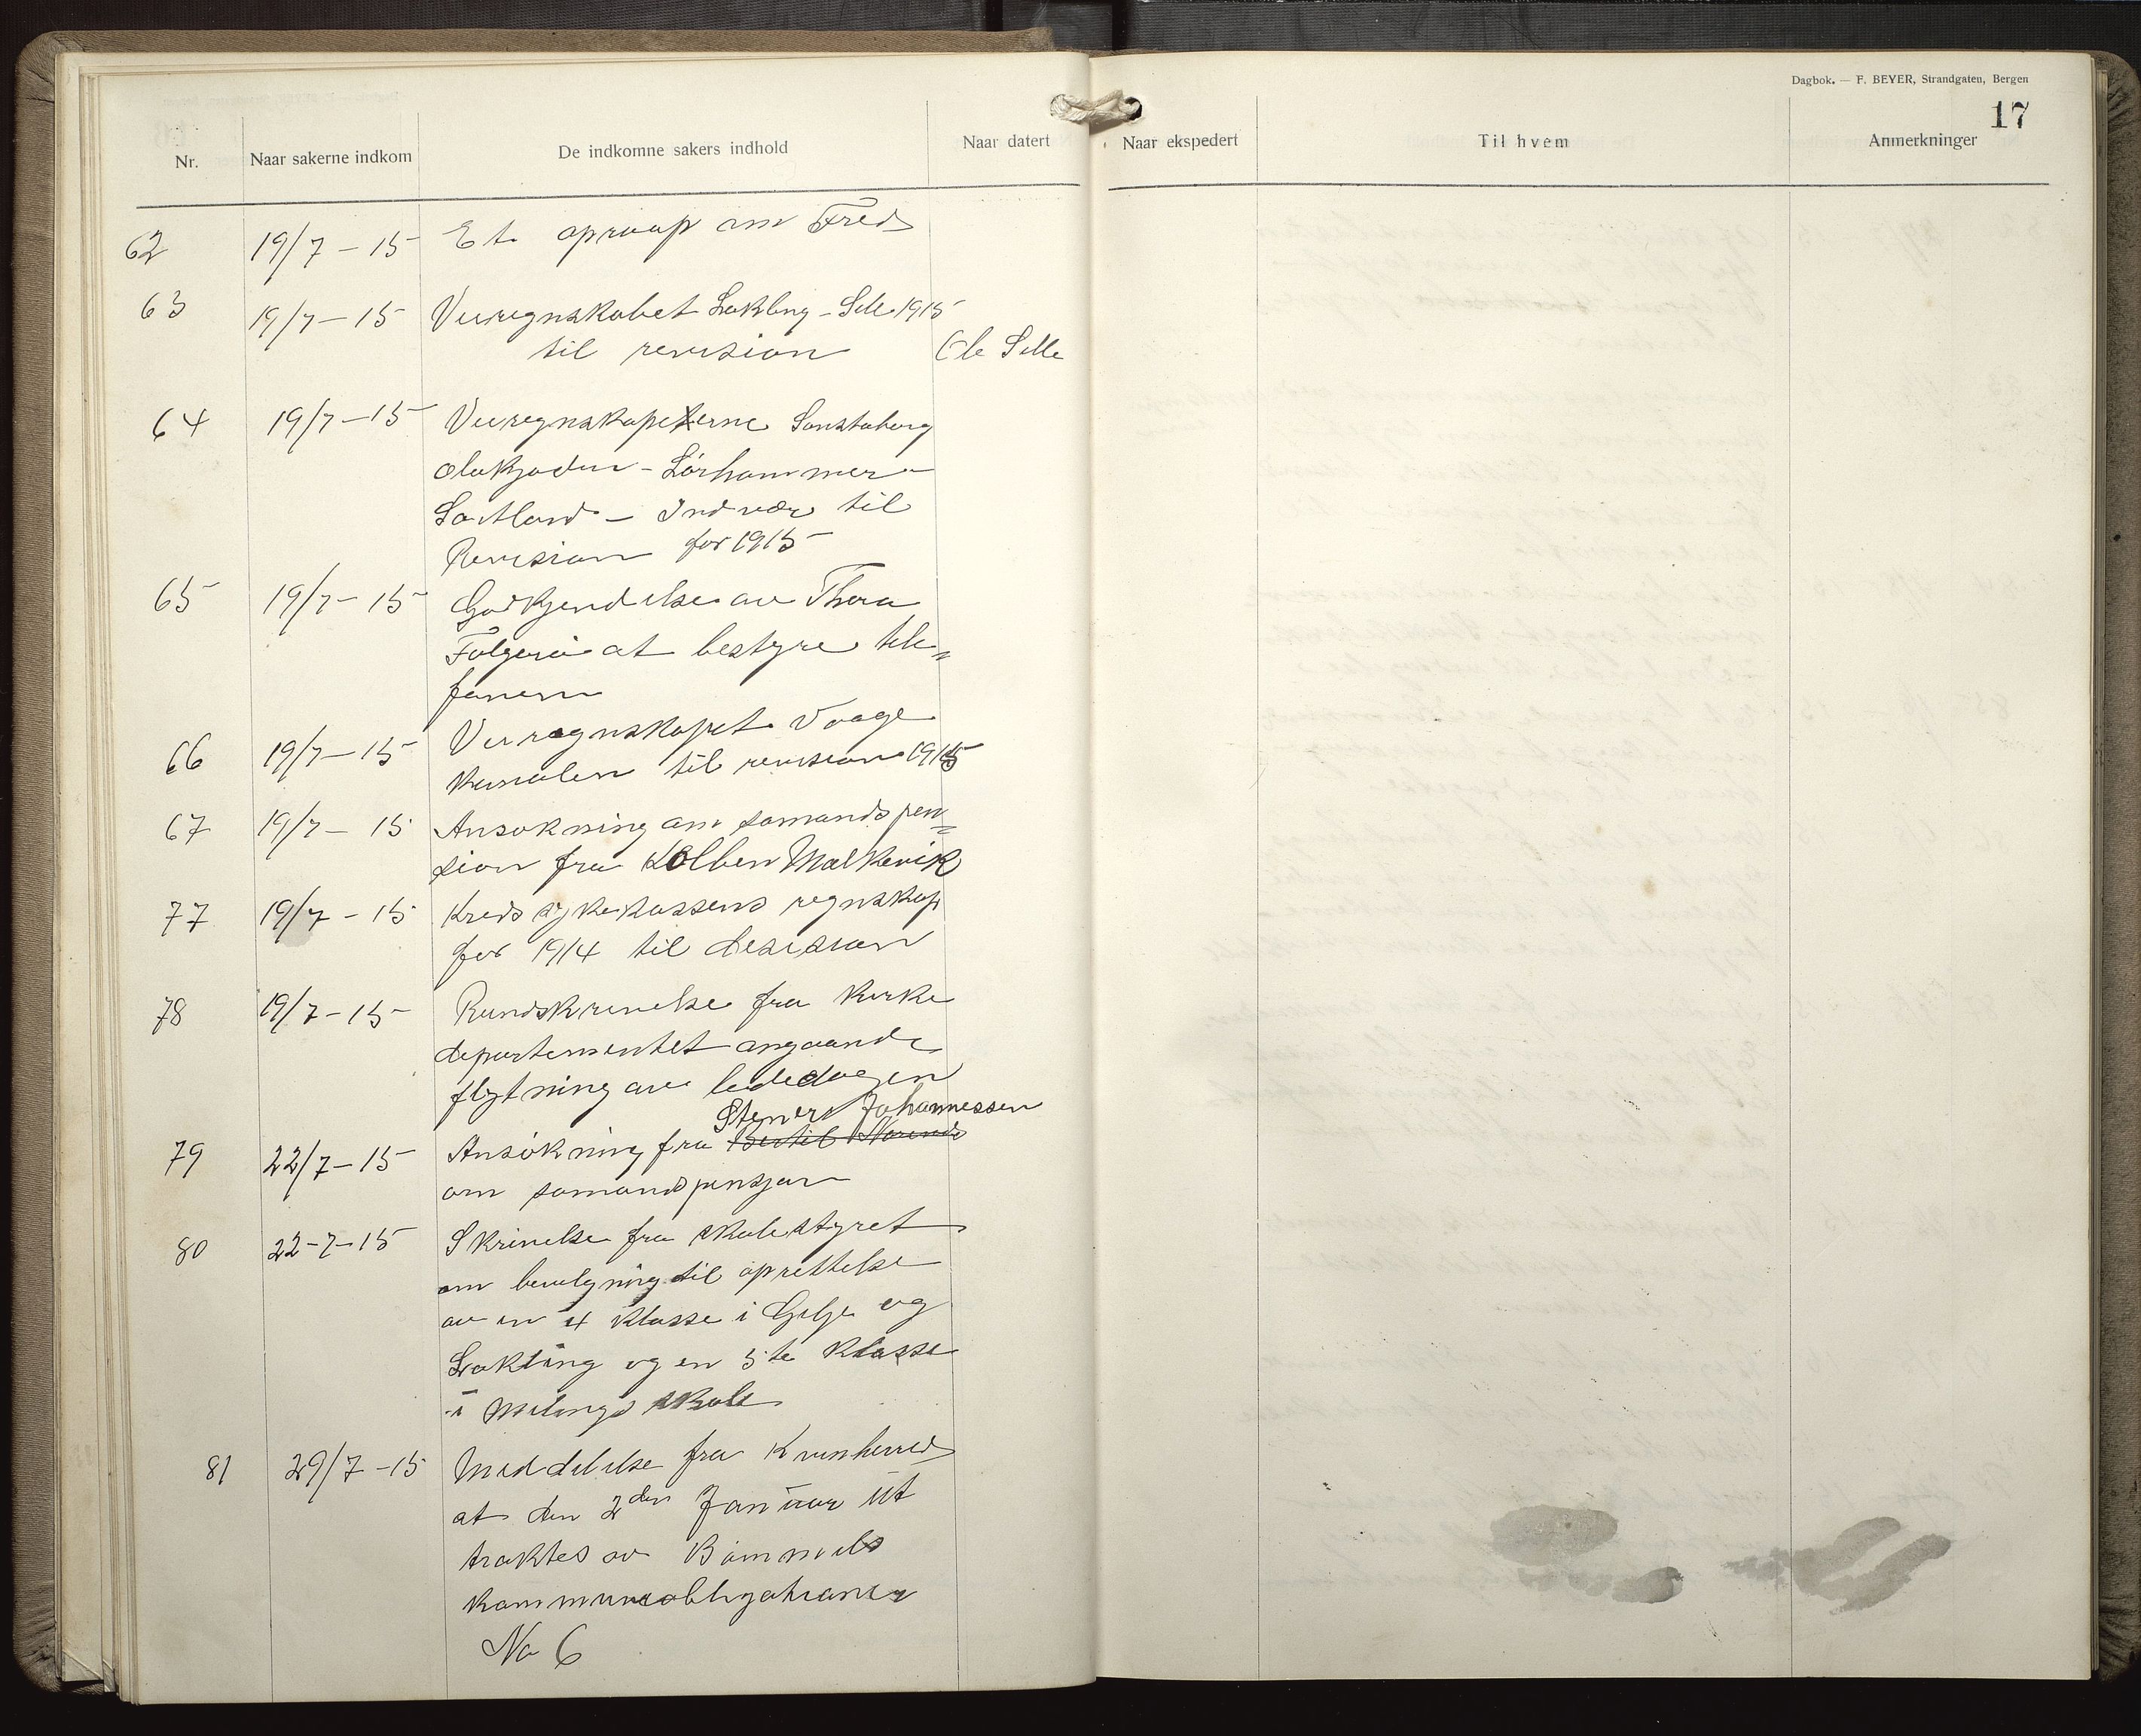 Dagbok. — F. BEYER, Strandgaten, Bergen
17
Nr. Naar sakerne indkom De indkomne sakers indhold Naar datert Naar ekspedert Til hvem Anmerkninger
62 19/7-15 Et opraap om Fred
63 19/7-15 Veiregnskabet Lokling - Selle 1915
til revision Ole Selle
64 19/7-15 Veiregnskapeterne Sonstabøvog
Olakjoden - Lörhammer
Saitland - Indvær til
Revision for 1915
65 19/7-15 Godkjendelse av Thora
Folgerö at bestyre tele=
fonen
66 19/7-15 Veiregnskapet Vaage
kanalen til revision 1915
67 19/7-15 Ansokning om somands pen=
sion fra Kolben Malkevik
77 19/7-15 Kreds sykekassens regnskap
for 1914 til desision
78 19/7-15 Rundskrivelse fra Kirke
departementet angaande
flytning av bededagen
Stener Johannessen
79 22/7-15 Ansökning fra Bertil
om somandspensjon
80 22-7-15 Skrivelse fra skolestyret
om bevilgning til oprettelse
av en 4 klasse i Gilje og
Lokling og en 5te klasse
i Melings skole
81 29/7-15 Meddelelse fra Kvinherred
at den 2den Januar ut
traktes av Bömmels
kommuneobligationer
No 6